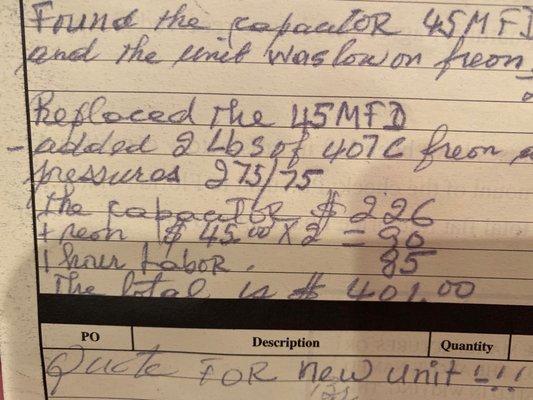 Found the capacitor 45MFD
and the unit was low on freon
Replaced The 45MFD
- added 2 Lbs of 407C freon
pressures 275/75
The capacitor $ 226
freon $ 45.00 x 2 = 90
1 hour Labor. 85
The total is $ 401.00
PO Description Quantity
Quote FOR new unit - !!!